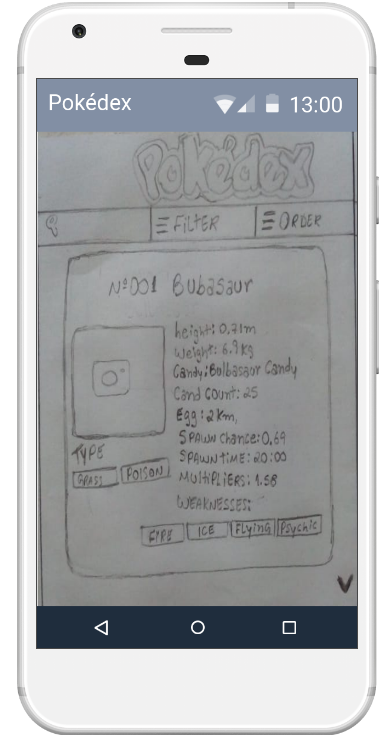 Pokédex 13:00
Pokédex
FILTER
ORDER
Nº001 Bubasaur
height: 0.71m
Weight: 6.9kg
Candy: Bolbasaur Candy
Cand Count: 25
Egg: 2km,
SPAWN Chance: 0,69
SPAWNTIME: 20:00
MULTIPLIERS: 1.58
WEAKNESSES:
TYPE
GRASS
POISON
FIRE
ICE
FLYING
PSychic